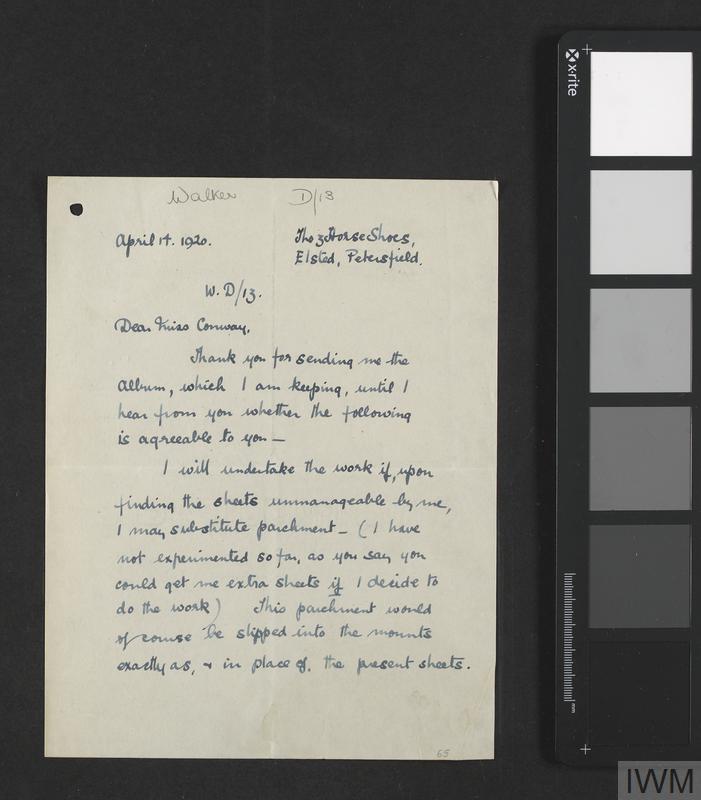 Walker D/13
April 14. 1920.
The 3 Horse Shoes,
Elsted, Petersfield.
W. D/13.
Dear Miss Conway,
Thank you for sending me the
album, which I am keeping, until I
hear from you whether the following
is agreeable to you —
I will undertake the work if, upon
finding the sheets unmanageable by me,
I may substitute parchment — (I have
not experimented so far, as you say you
could get me extra sheets if I decide to
do the work) This parchment would
of course be slipped into the mounts
exactly as, & in place of, the present sheets.
65
x·rite
mm
IWM